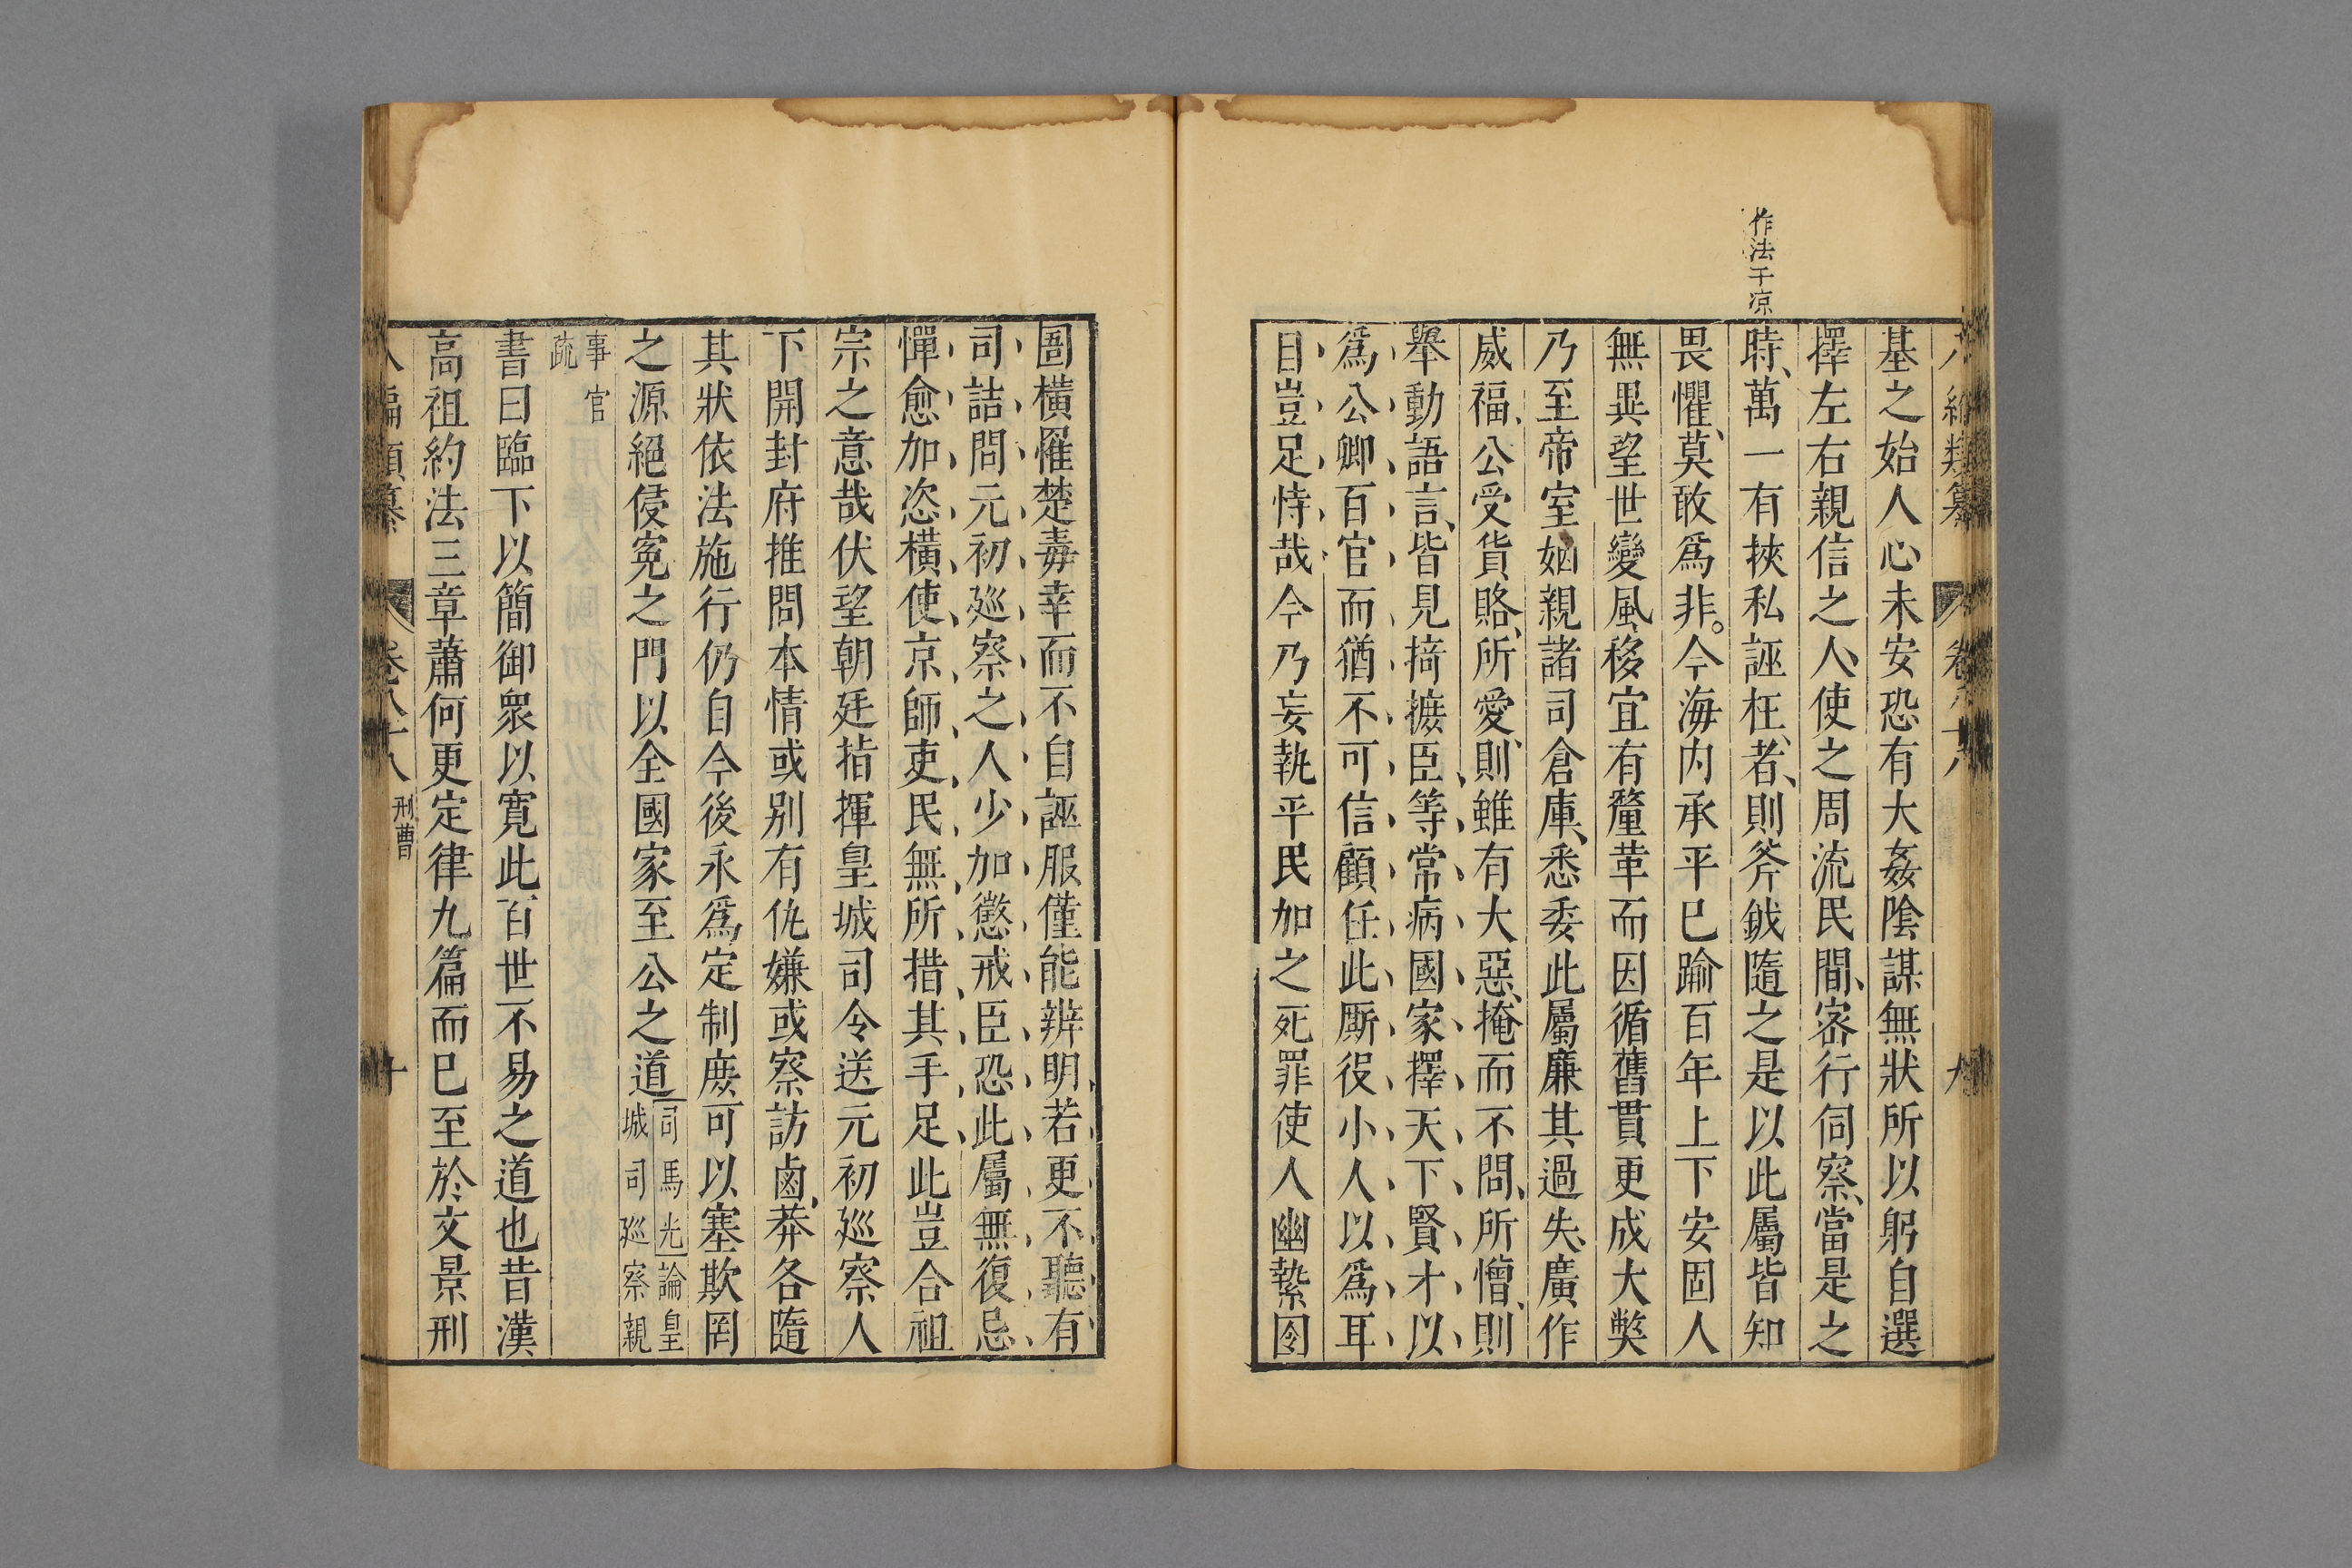 八編類纂 卷八十八 九
作法于凉
基之始人心未安恐有大姦陰謀無狀所以躬自選
擇左右親信之人、使之周流民間、宻行伺察、當是之
時、萬一有挾私誣枉、者、則斧鉞隨之是以此屬皆知
畏懼、莫敢爲非。今海内承平已踰百年上下安固人
無異望世變風移宜有釐革而因循舊貫更成大獘
乃至帝室姻親諸司倉庫、悉委此屬廉其過失、廣作
威福、公受貨賂、所愛、則雖有大惡、掩而不問、所憎、則
舉動語言、皆見掎摭臣、等常病國家擇天下賢才以
爲公卿百官而猶不可信顧任此厮役小人以爲耳
目豈足恃哉今乃妄執平民加之死罪使人幽縶囹
圄橫罹楚毒幸而不自誣服僅能辨明若更不聽有
司詰問元初廵察之人少加懲戒臣恐此屬無復忌
憚愈加恣橫使京師吏民無所措其手足此豈合祖
宗之意哉伏望朝廷指揮皇城司令送元初廵察人
下開封府推問本情或别有仇嫌或察訪鹵莽各隨
其狀依法施行仍自今後永爲定制庻可以塞欺罔
之源絕侵寃之門以全國家至公之道司馬光論皇
城司廵察親
事官
疏
書曰臨下以簡御衆以寛此百世不易之道也昔漢
高祖約法三章蕭何更定律九篇而已至於文景刑
八編類纂 卷八十八 刑曹 十